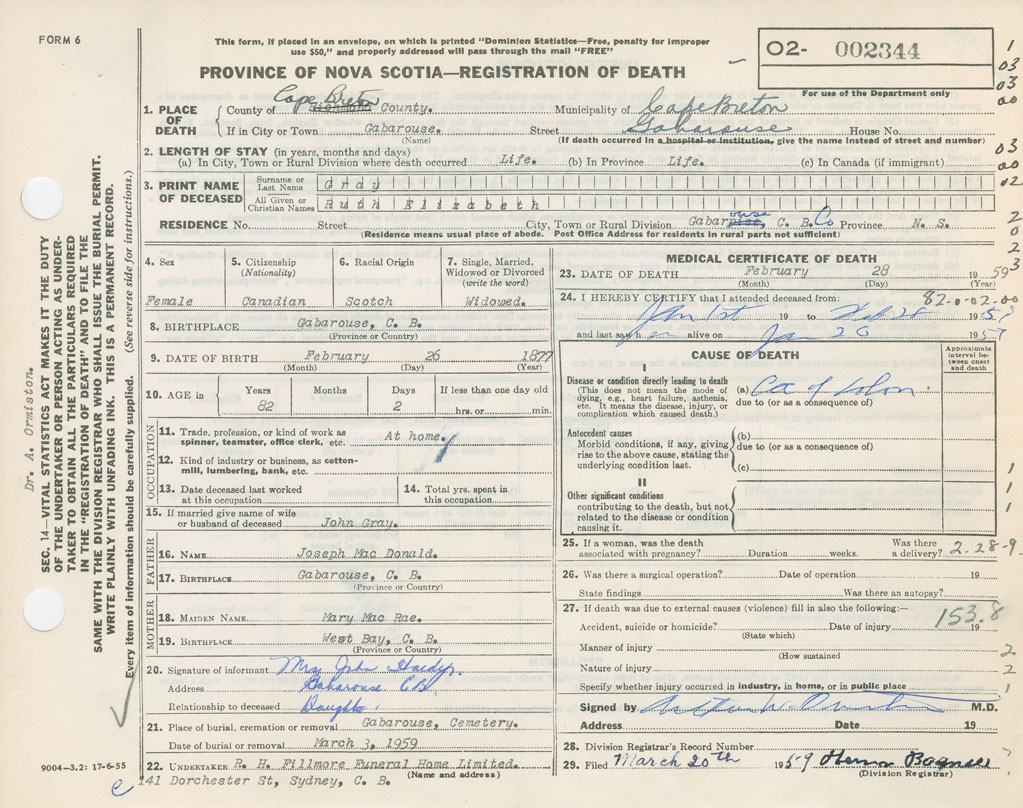 FORM 6
This form, if placed in an envelope, on which is printed "Dominion Statistics—Free, penalty for improper
use $50," and properly addressed will pass through the mail "FREE"
PROVINCE OF NOVA SCOTIA—REGISTRATION OF DEATH
O2- 002344
For use of the Department only
1. PLACE OF DEATH
County of Cape Breton Richmond County. Municipality of Cape Breton
If in City or Town Gabarouse. Street Gabarouse House No.
(Name) (If death occurred in a hospital or institution, give the name instead of street and number)
2. LENGTH OF STAY (in years, months and days)
(a) In City, Town or Rural Division where death occurred Life. (b) In Province Life. (c) In Canada (if immigrant)
3. PRINT NAME OF DECEASED
Surname or Last Name Gray
All Given or Christian Names Ruth Elizabeth
RESIDENCE No. Street City, Town or Rural Division Gabarouse C. B. Co Province N. S.
(Residence means usual place of abode. Post Office Address for residents in rural parts not sufficient)
4. Sex Female
5. Citizenship (Nationality) Canadian
6. Racial Origin Scotch
7. Single, Married, Widowed or Divorced (write the word) Widowed.
8. BIRTHPLACE Gabarouse, C. B.
(Province or Country)
9. DATE OF BIRTH February 26 1877
(Month) (Day) (Year)
10. AGE in Years 82 Months Days 2 If less than one day old hrs. or min.
OCCUPATION
11. Trade, profession, or kind of work as spinner, teamster, office clerk, etc. At home.
12. Kind of industry or business, as cotton-mill, lumbering, bank, etc.
13. Date deceased last worked at this occupation
14. Total yrs. spent in this occupation
15. If married give name of wife or husband of deceased John Gray.
FATHER
16. NAME Joseph Mac Donald.
17. BIRTHPLACE Gabarouse, C. B.
(Province or Country)
MOTHER
18. MAIDEN NAME Mary Mac Rae.
19. BIRTHPLACE West Bay, C. B.
(Province or Country)
20. Signature of informant Mrs John Hardy.
Address Gabarouse C.B.
Relationship to deceased Daughter
21. Place of burial, cremation or removal Gabarouse, Cemetery.
Date of burial or removal March 3, 1959
22. UNDERTAKER R. H. Fillmore Funeral Home Limited.
(Name and address)
141 Dorchester St, Sydney, C. B.
MEDICAL CERTIFICATE OF DEATH
23. DATE OF DEATH February 28 1959
(Month) (Day) (Year)
82-0-02-00
24. I HEREBY CERTIFY that I attended deceased from:
Jan 1st 19 to Feb 28 1959
and last saw h er alive on Jan 26 1959
CAUSE OF DEATH
Approximate interval between onset and death
I
Disease or condition directly leading to death (a) Ca of Colon.
(This does not mean the mode of dying, e.g., heart failure, asthenia, etc. It means the disease, injury, or complication which caused death.)
due to (or as a consequence of)
Antecedent causes
Morbid conditions, if any, giving rise to the above cause, stating the underlying condition last.
(b)
due to (or as a consequence of)
(c)
II
Other significant conditions
contributing to the death, but not related to the disease or condition causing it.
25. If a woman, was the death associated with pregnancy? Duration weeks. Was there a delivery?
2-28-9
26. Was there a surgical operation? Date of operation 19
State findings Was there an autopsy?
27. If death was due to external causes (violence) fill in also the following:—
153.8
Accident, suicide or homicide? Date of injury 19
(State which)
Manner of injury
(How sustained
Nature of injury
Specify whether injury occurred in industry, in home, or in public place
Signed by M.D.
Address Date 19
28. Division Registrar's Record Number
29. Filed March 20th 1959
(Division Registrar)
1
03
03
00
03
00
02
2
0
2
3
1
1
1
2
2
1
Dr. A. Ormiston.
SEC. 14—VITAL STATISTICS ACT MAKES IT THE DUTY
OF THE UNDERTAKER OR PERSON ACTING AS UNDER-
TAKER TO OBTAIN ALL THE PARTICULARS REQUIRED
IN THE "REGISTRATION OF DEATH" AND TO FILE THE
SAME WITH THE DIVISION REGISTRAR WHO SHALL ISSUE THE BURIAL PERMIT.
WRITE PLAINLY WITH UNFADING INK. THIS IS A PERMANENT RECORD.
Every item of information should be carefully supplied. (See reverse side for instructions.)
9004-3.2: 17-6-55
e